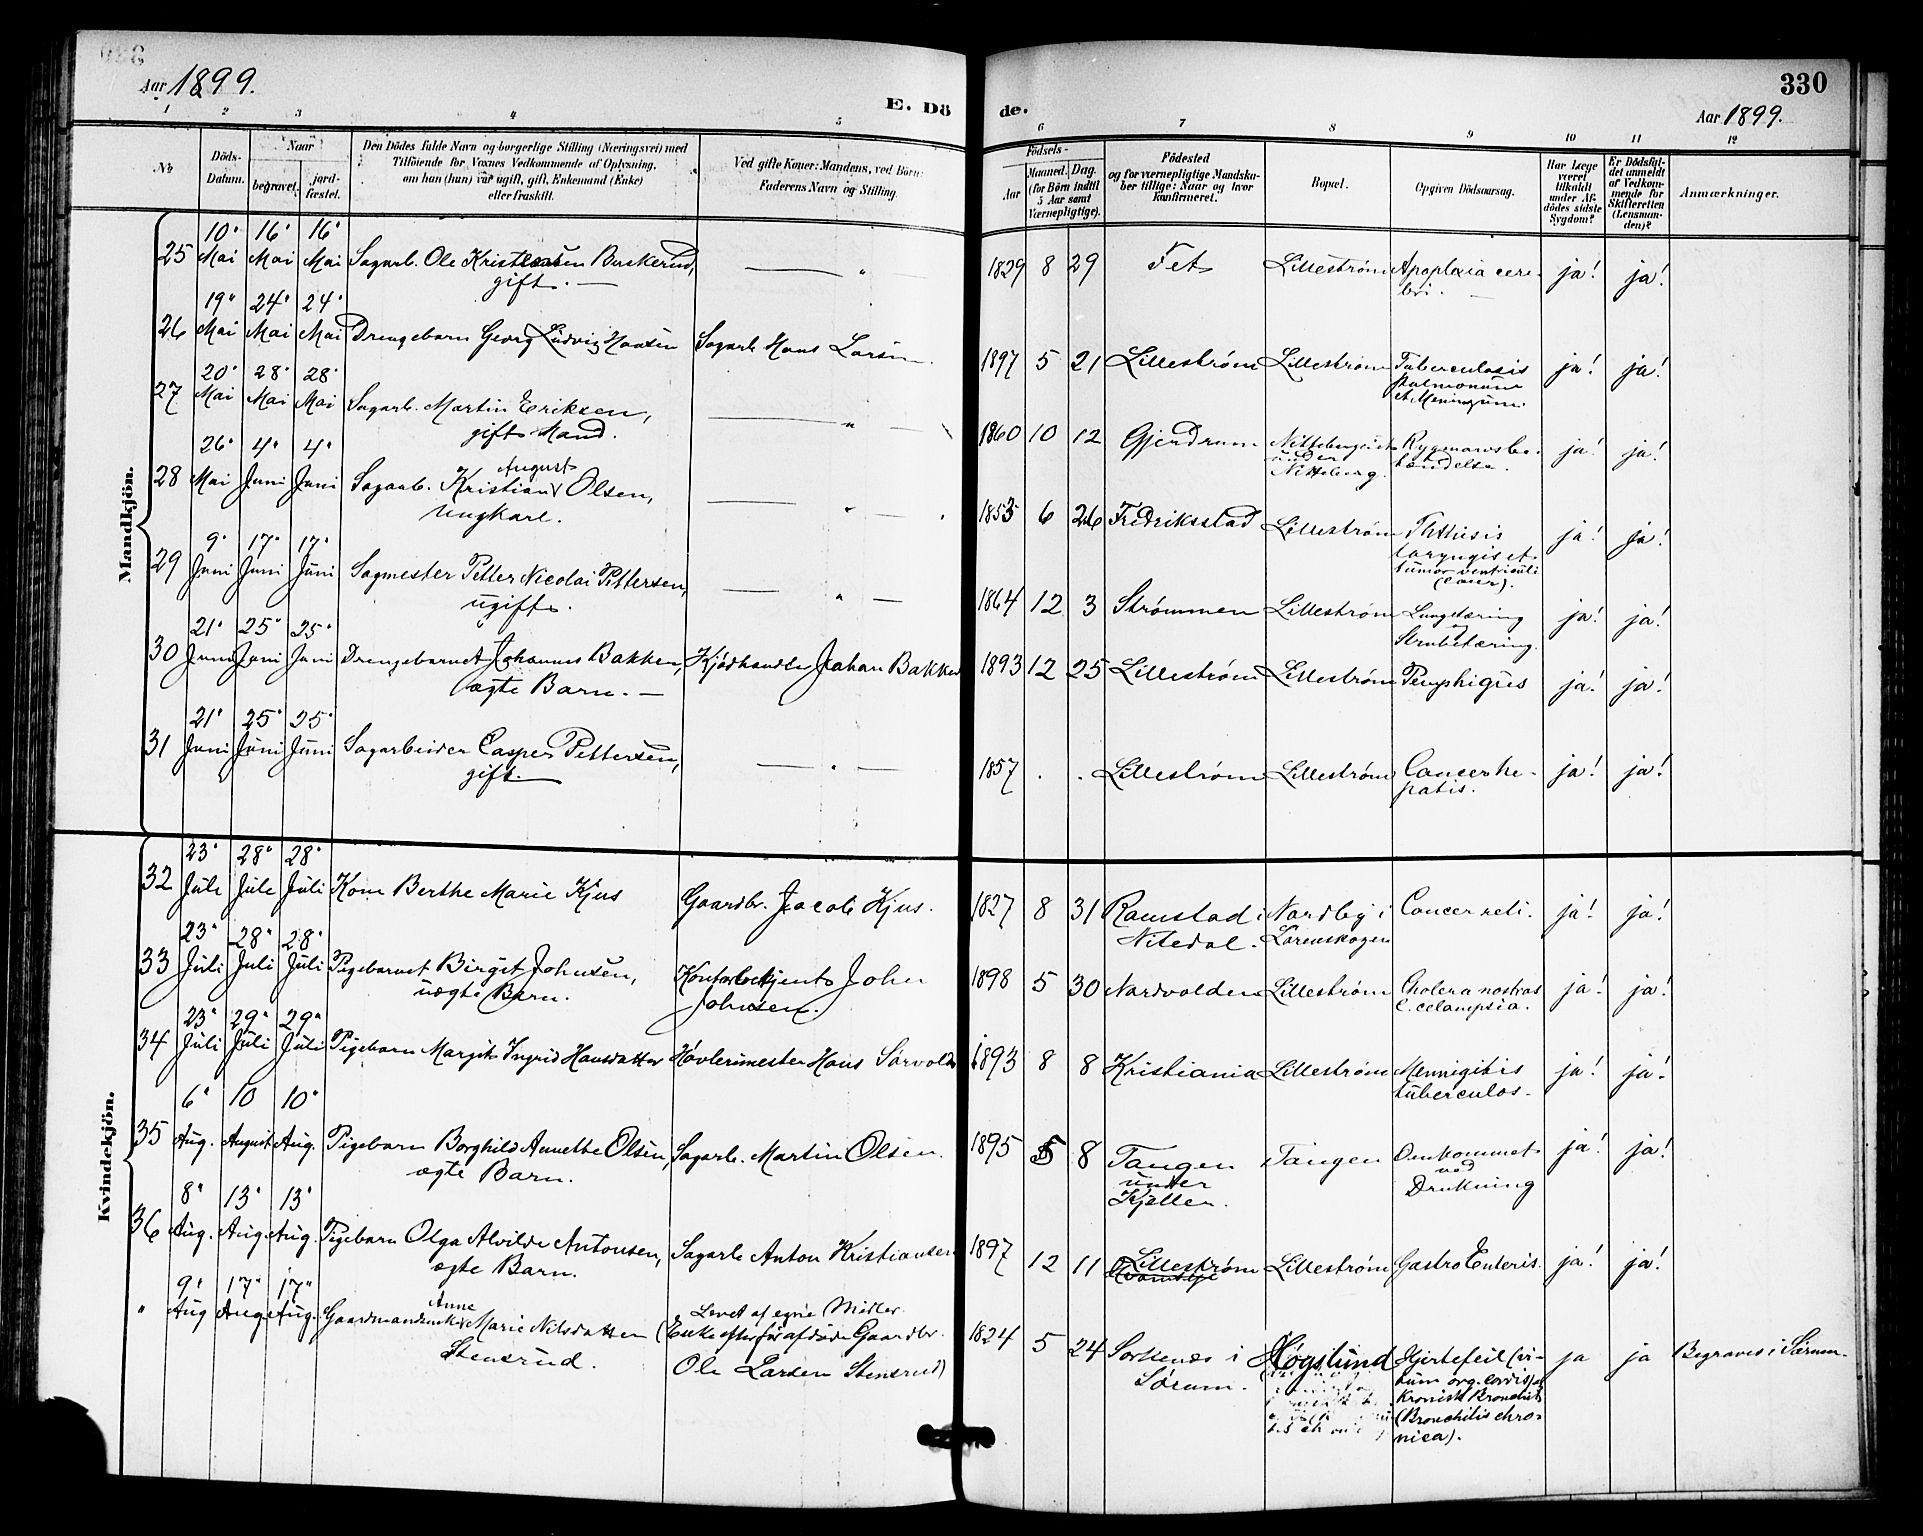 Aar 1899.
E. Döde.
330
Aar 1899.
1 2 3 4 5 6 7 8 9 10 11 12
No
Döds-Datum.
Naar
begravet.
jord-fæstet.
Den Dödes fulde Navn og borgerlige Stilling (Næringsvei) med
Tilföiende for Voxnes Vedkommende af Oplysning,
om han (hun) var ugift, gift, Enkemand (Enke)
eller fraskilt.
Ved gifte Koner: Mandens, ved Börn:
Faderens Navn og Stilling.
Födsels-
Aar
Maaned. Dag.
(for Börn indtil
5 Aar samt
Værnepligtige).
Födested
og for værnepligtige Mandska-
ber tillige: Naar og hvor
konfirmeret.
Bopæl.
Opgiven Dödsaarsag.
Har Læge
været
tilkaldt
under Af-
dödes sidste
Sygdom?
Er Dödsfal-
det anmeldt
af Vedkom-
mende for
Skifteretten
(Lensman-
den)?
Anmærkninger.
Mandkjön.
10. 16. 16.
25 Mai Mai Mai Sagarb. Ole Kristensen Buskerud, — „ 1829 8 29 Fet Lillestrøm Apoplexia cere- ja! ja!
gift. — bri. —
19. 24. 24.
26 Mai Mai Mai Drengebarn Georg Ludvig Hansen Sagarb Hans Larsen 1897 5 21 Lillestrøm Lillestrøm Tuberculosis ja! ja!
Pulmonum
et Meningum.
20. 28. 28.
27 Mai Mai Mai Sagarb. Martin Eriksen, — „ — 1860 10 12 Gjerdrum ja! ja!
gift Mand. under
Nitteberg.
26. 4. 4.
28 Mai Juni Juni Sagarb. Kristian August Olsen, — „ — 1853 6 26 Fredriksstad Lillestrøm Phthisis ja! ja!
Ungkarl. laryngis et
tumor ventriculi
9. 17. 17.
29 Juni Juni Juni Sagmester Petter Nicolai Pettersen, — „ — 1864 12 3 Strømmen Lillestrøm Lungetæring ja! ja!
ugift. og
Strubetæring.
21. 25. 25.
30 Juni Juni Juni Drengebarnet Johannes Bakken, Kjödhandler Johan Bakken 1893 12 25 Lillestrøm Lillestrøm Pemphigus ja! ja!
ægte Barn. —
21. 25. 25.
31 Juni Juni Juni Sagarbeider Casper Pettersen, — „ — 1857 . . Lillestrøm Lillestrøm Cancer he- ja! ja!
gift. — patis.
Kvindekjön.
23. 28. 28.
32 Juli Juli Juli Kone Berthe Marie Kjus Gaardbr. Jacob Kjus. 1827 8 31 Ramstad i Nordby i Cancer reti. ja! ja!
Nitedal. Lørenskogen
23. 28. 28.
33 Juli Juli Juli Pigebarnet Birgit Johnsen, Kontorbetjent John 1898 5 30 Nordvolden Lillestrøm Cholera nostras ja! ja!
uægte Barn. Johnsen. E. celampsia.
23. 29. 29.
34 Juli Juli Juli Pigebarn Margit Ingrid Hansdatter Høvlerimester Hans Sørvold 1893 8 8 Kristiania Lillestrøm Mennigitis ja! ja!
tuberculos.
6. 10 10.
35 Aug. August Aug. Pigebarn Borghild Annette Olsen, Sagarb. Martin Olsen. 1895 5 8 Tangen Tangen Omkommet ja! ja!
ægte Barn. under ved
Kjellen. Drukning
8. 13. 13.
36 Aug. Aug. Aug. Pigebarn Olga Alvilde Antonsen, Sagarb Anton Kristiansen 1897 12 11 Lillestrøm Lillestrøm Gastro Enteris. ja! ja!
ægte Barn.
9. 17. 17.
„ Aug Aug Aug. Gaardmandsenke Anne Marie Nilsdatter Levet af egne Midler.
Stensrud. (Enke efter før afdøde Gaardbr.
Ole Larsen Stensrud)
1824 5 24 Sorknæs i Høgslund Hjertefeil (vi- ja ja Begraves i Sørum.
Sørum. tium org. cordis) og
kronisk Bronchit
(Bronchitis chro-
nica).